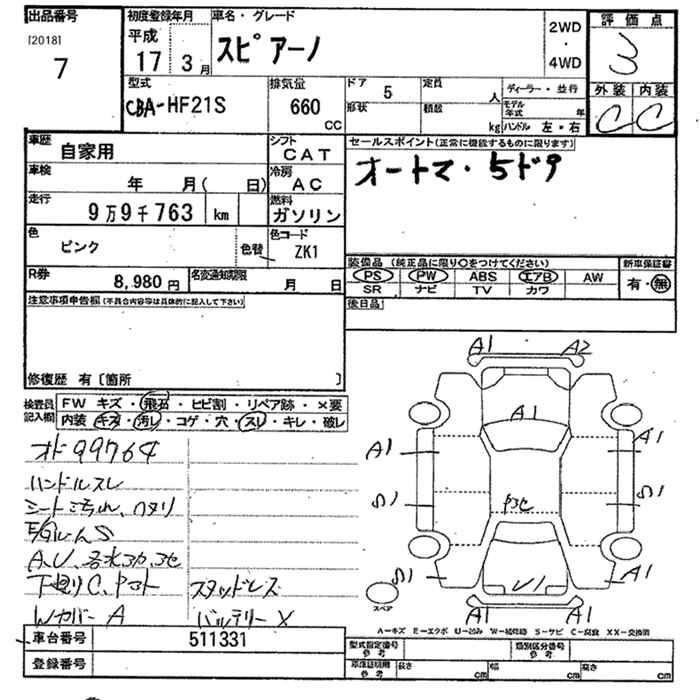 出品番号
[2018]
7
初度登録年月
平成
17 3 月
車名・グレード
スピアーノ
2WD
・
4WD
評価点
3
外装 内装
C C
型式
CBA-HF21S
排気量
660
CC
ドア
5
形状
定員
人
積載
kg
ディーラー・並行
モデル年式 年
ハンドル 左・右
車歴
自家用
シフト
CAT
車検
年 月( 日)
冷房
AC
走行
9万9千763 km
燃料
ガソリン
色
ピンク
色替
色コード
ZK1
R券
8,980 円
名変通知期限
月 日
セールスポイント(正常に機能するものに限ります)
オートマ・5ドア
装備品 (純正品に限り○をつけてください)
PS PW ABS エアB AW
SR ナビ TV カワ
新車保証書
有・無
後日品
注意事項申告欄(不具合内容等は具体的に記入して下さい)
修復歴 有〔箇所 〕
検査員記入欄
FW キズ・飛石・ヒビ割・リペア跡・×要
内装・キズ・汚レ・コゲ・穴・スレ・キレ・破レ
オド99764
ハンドルスレ
シートこちれ、ヘタリ
E/Gルーム S
下廻りC、
スタッドレス
Wカバー A
バッテリーX
A1 A2
A1
A1 A1
S1 S1
S1 A1
U1
A1 A1
スペア
A-キズ E-エクボ U-凹み W-補修跡 S-サビ C-腐食 XX-交換済
車台番号
511331
登録番号
型式指定番号
参考
類別区分番号
参考
車庫証明用
参考
長さ cm 幅 cm 高さ cm